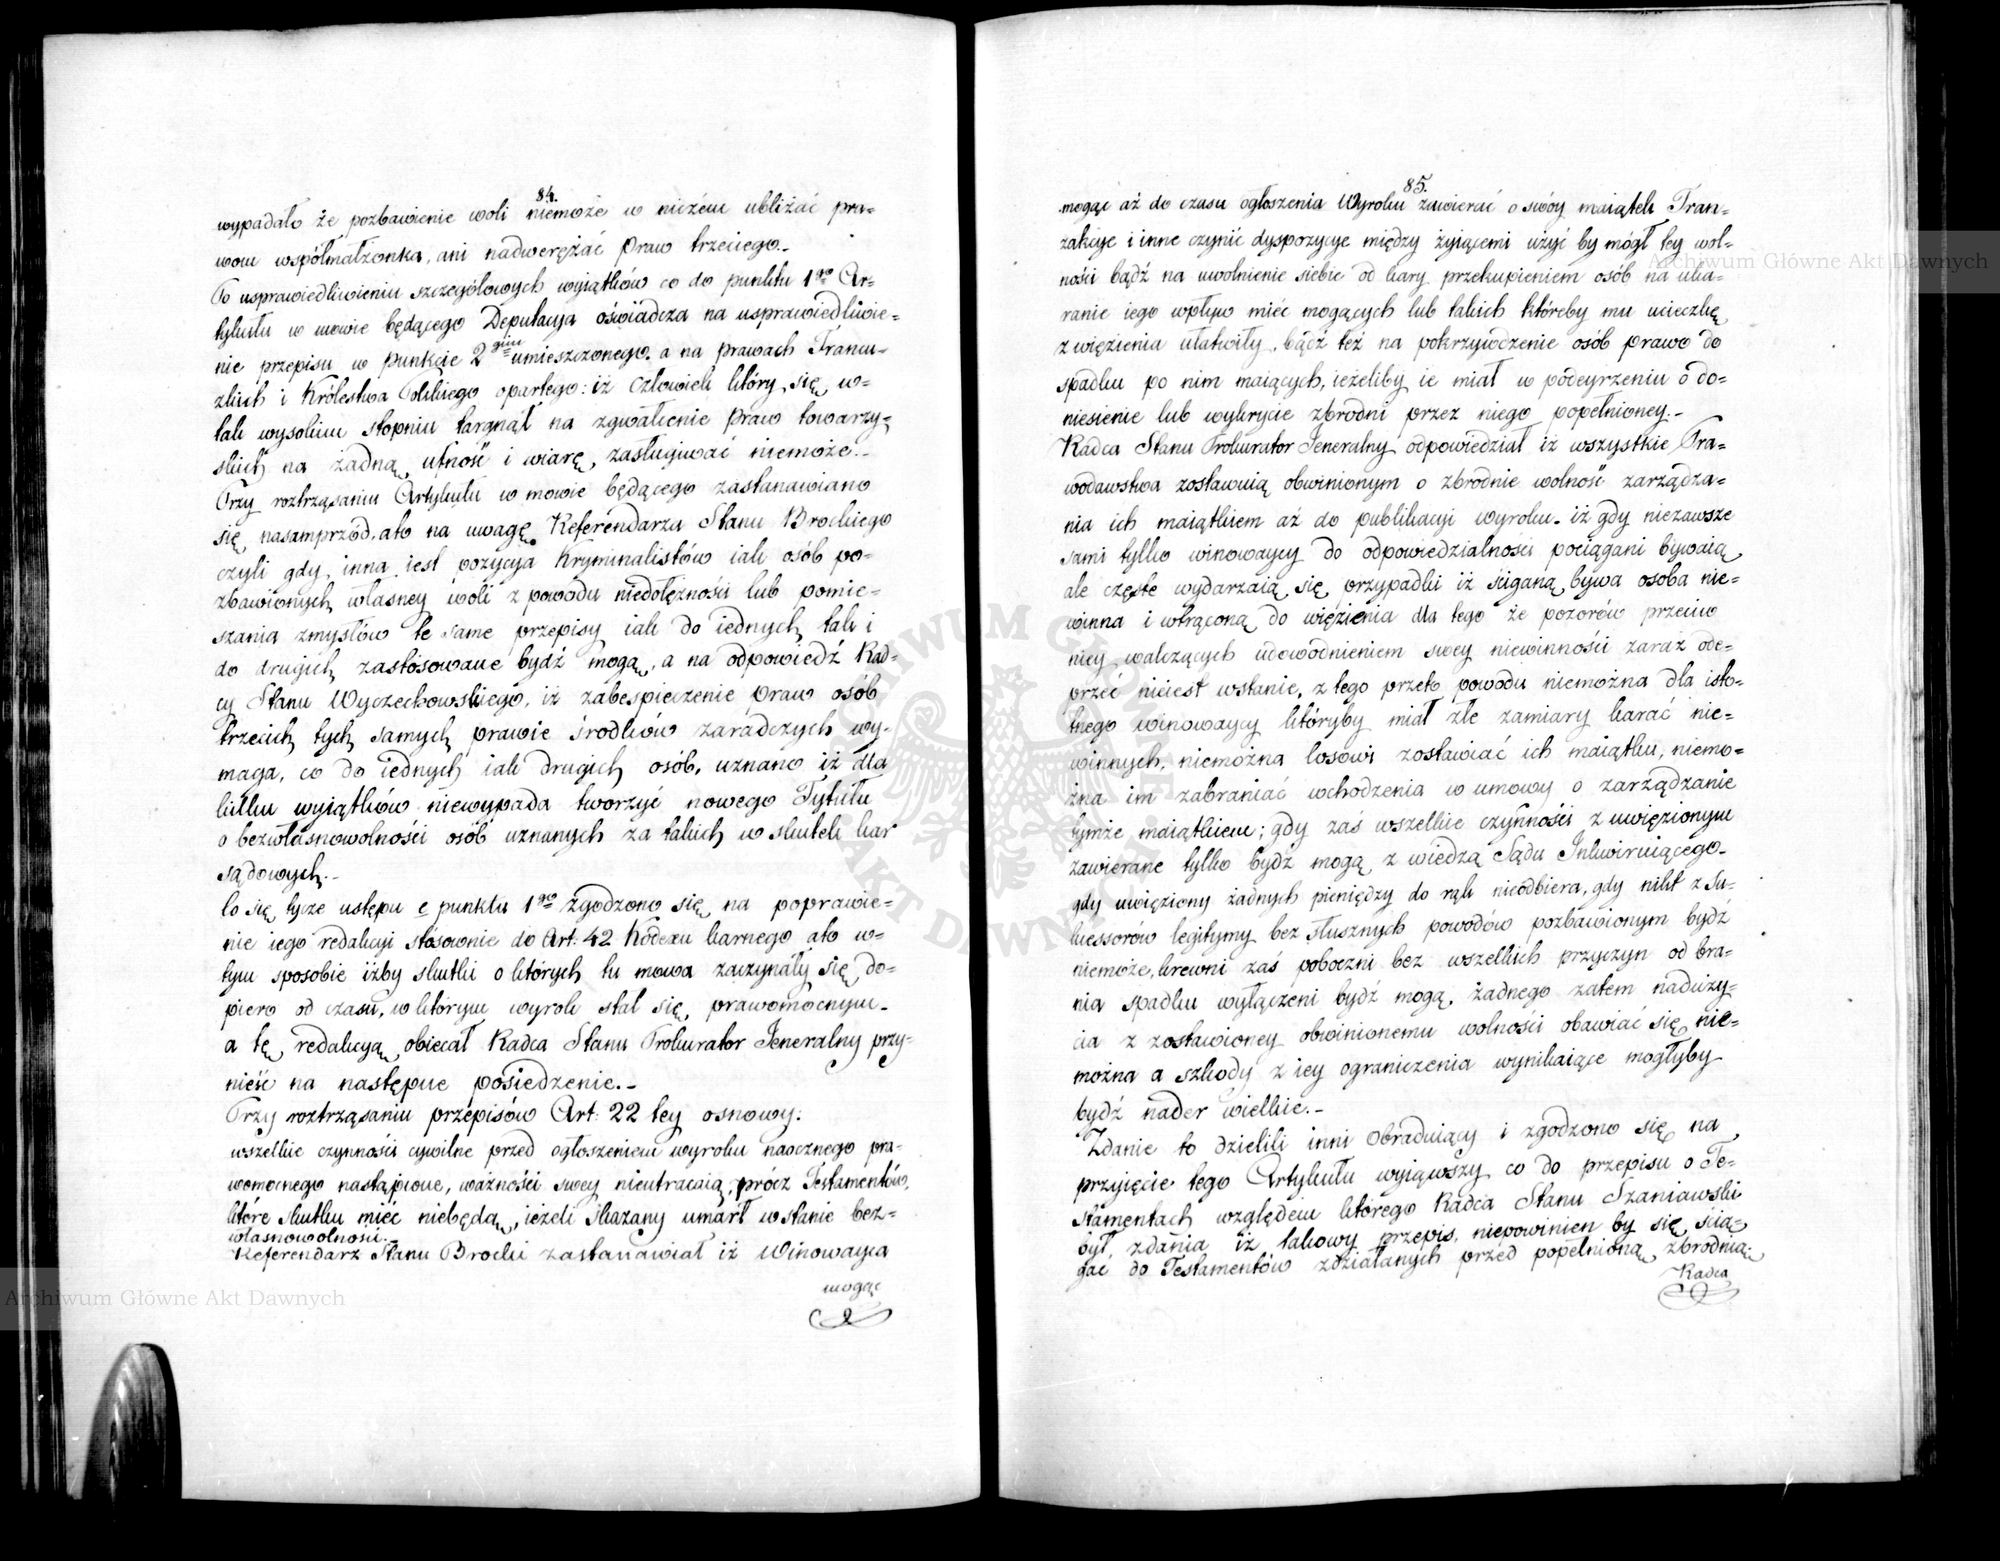 84.
wypadało że pozbawienie woli niemoże w niczém ubliżać pra=
wom wspólmałżonka, ani nadwerężać praw trzeciego.-
Po usprawiedliwieniu szczegółowych wyiątków co do punktu 1go Ar=
tykułu w mowie będącego Deputacya oświadcza na usprawiedliwie=
nie przepisu w punkcie 2gim umieszczonego, a na prawach Francu=
zkich i Królestwa Polskiego opartego: iż człowiek który się w=
tak wysokim stopniu targnął na zgwałcenie praw towarzy=
skich na żadną ufność i wiarę, zasługiwać niemoże.-
Przy roztrząsaniu Artykułu w mowie będącego zastanawiano
się nasamprzód, ato na uwagę Referendarza Stanu Brockiego
czyli gdy inna iest pozycya Kryminalistów iak osób po=
zbawionych własney woli z powodu niedołężności lub pomie=
szania zmysłów te same przepisy iak do iednych tak i
do drugich zastósowane bydź mogą, a na odpowiedź Rad=
cy Stanu Wyczechowskiego, iż zabespieczenie praw osób
trzecich tych samych prawie środków zaradczych wy=
maga, co do iednych iak drugich osób, uznano iż dla
kilku wyiątków niewypada tworzyć nowego Tytułu
o bezwłasnowolności osób uznanych za takich w skutek kar
sądowych.-
Co się tycze ustępu c punktu 1go zgodzono się na poprawie=
nie iego redakcyi stósownie do Art: 42 Kodexu karnego ato w=
tym sposobie iżby skutki o których tu mowa zaczynały się do=
piero od czasu, w którym wyrok stał się prawomocnym.-
a tę redakcyą obiecał Radca Stanu Prokurator Jeneralny przy=
nieść na następne posiedzenie.-
Przy roztrząsaniu przepisów Art: 22 tey osnowy:
wszelkie czynności cywilne przed ogłoszeniem wyroku naocznego pra=
womocnego nastąpione, ważności swey nieutracaią, prócz Testamentów,
które skutku mieć niebędą, ieżeli Skazany umarł w stanie bez=
własnowolności.-
Referendarz Stanu Brocki zastanawiał iż Winowayca
mogąc
85.
mogąc aż do czasu ogłoszenia Wyroku zawierać o swóy maiątek Tran=
zakcye i inne czynić dyspozycye między żyiącemi użyć by mógł tey wol=
ności bądź na uwolnienie siebie od kary przekupieniem osób na uka=
ranie iego wpływ mieć mogących lub takich któreby mu ucieczkę
z więzienia ułatwiły, bądź też na pokrzywdzenie osób prawo do
spadku po nim maiących, ieżeliby ie miał w podeyrzeniu o do=
niesienie lub wykrycie zbrodni przez niego popełnioney.-
Radca Stanu Prokurator Jeneralny odpowiedział iż wszystkie Pra=
wodawstwa zostawuią obwinionym o zbrodnie wolność zarządza=
nia ich maiątkiem aż do publikacyi wyroku. iż gdy niezawsze
sami tylko winowaycy do odpowiedzialności pociągani bywaią
ale częste wydarzaią się przypadki iż ściganą bywa osoba nie=
winna i wtrąconą do więzienia dla tego że pozorów przeciw
niey walczących udowodnieniem swey niewinności zaraz ode=
przeć nieiest wstanie, z tego przeto powodu niemożna dla isto=
tnego winowaycy któryby miał złe zamiary karać nie=
winnych, niemożna losowi zostawiać ich maiątku, niemo=
żna im zabraniać wchodzenia w umowy o zarządzanie
tymże maiątkiem; gdy zaś wszelkie czynności z uwięzionym
zawierane tylko bydź mogą z wiedzą Sądu Inkwiruiącego.
gdy uwięziony żadnych pieniędzy do rąk nieodbiera, gdy nikt z Su=
kcessorów legitymy bez słusznych powodów pozbawionym bydź
niemoże, krewni zaś poboczni bez wszelkich przyczyn od bra=
nia spadku wyłączeni bydź mogą, żadnego zatem naduży=
cia z zostawioney obwinionemu wolności obawiać się nie=
można a szkody z iey ograniczenia wynikaiące mogłyby
bydź nader wielkie.-
Zdanie to dzielili inni Obraduiący i zgodzono się na
przyięcie tego Artykułu wyiąwszy co do przepisu o Te=
stamentach względem którego Radca Stanu Szaniawski
był zdania iż takowy przepis niepowinien by się ścią=
gać do Testamentów zdziałanych przed popełnioną zbrodnią.
Radca
Archiwum Główne Akt Dawnych
Archiwum Główne Akt Dawnych
ARCHIWUM GŁÓWNE AKT DAWNYCH